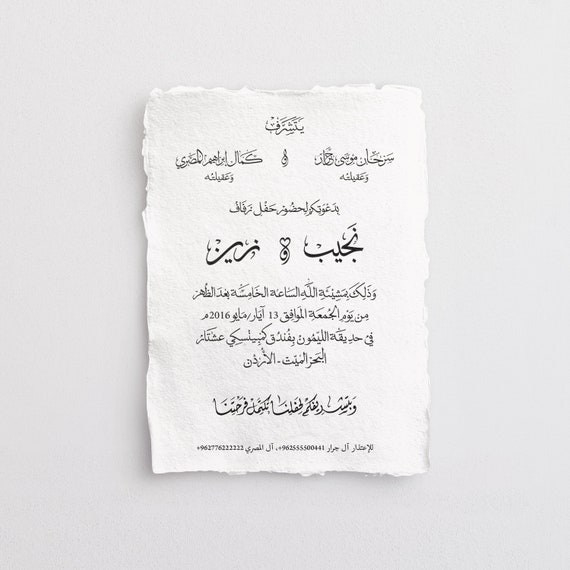 يتشرف
سرحان موسى جرار و كمال إبراهيم المصري
وعقيلته وعقيلته
بدعوتكم لحضور حفل زفاف
نجيب و زين
وذلك بمشيئة الله الساعة الخامسة بعد الظهر
من يوم الجمعة الموافق 13 آيار/مايو 2016م
في حديقة الليمون بفندق كمبينسكي عشتار
البحر الميت - الأردن
وبتشريفكم لحفلنا تكتمل فرحتنا
للإعتذار آل جرار 962555500441+، آل المصري 962776222222+